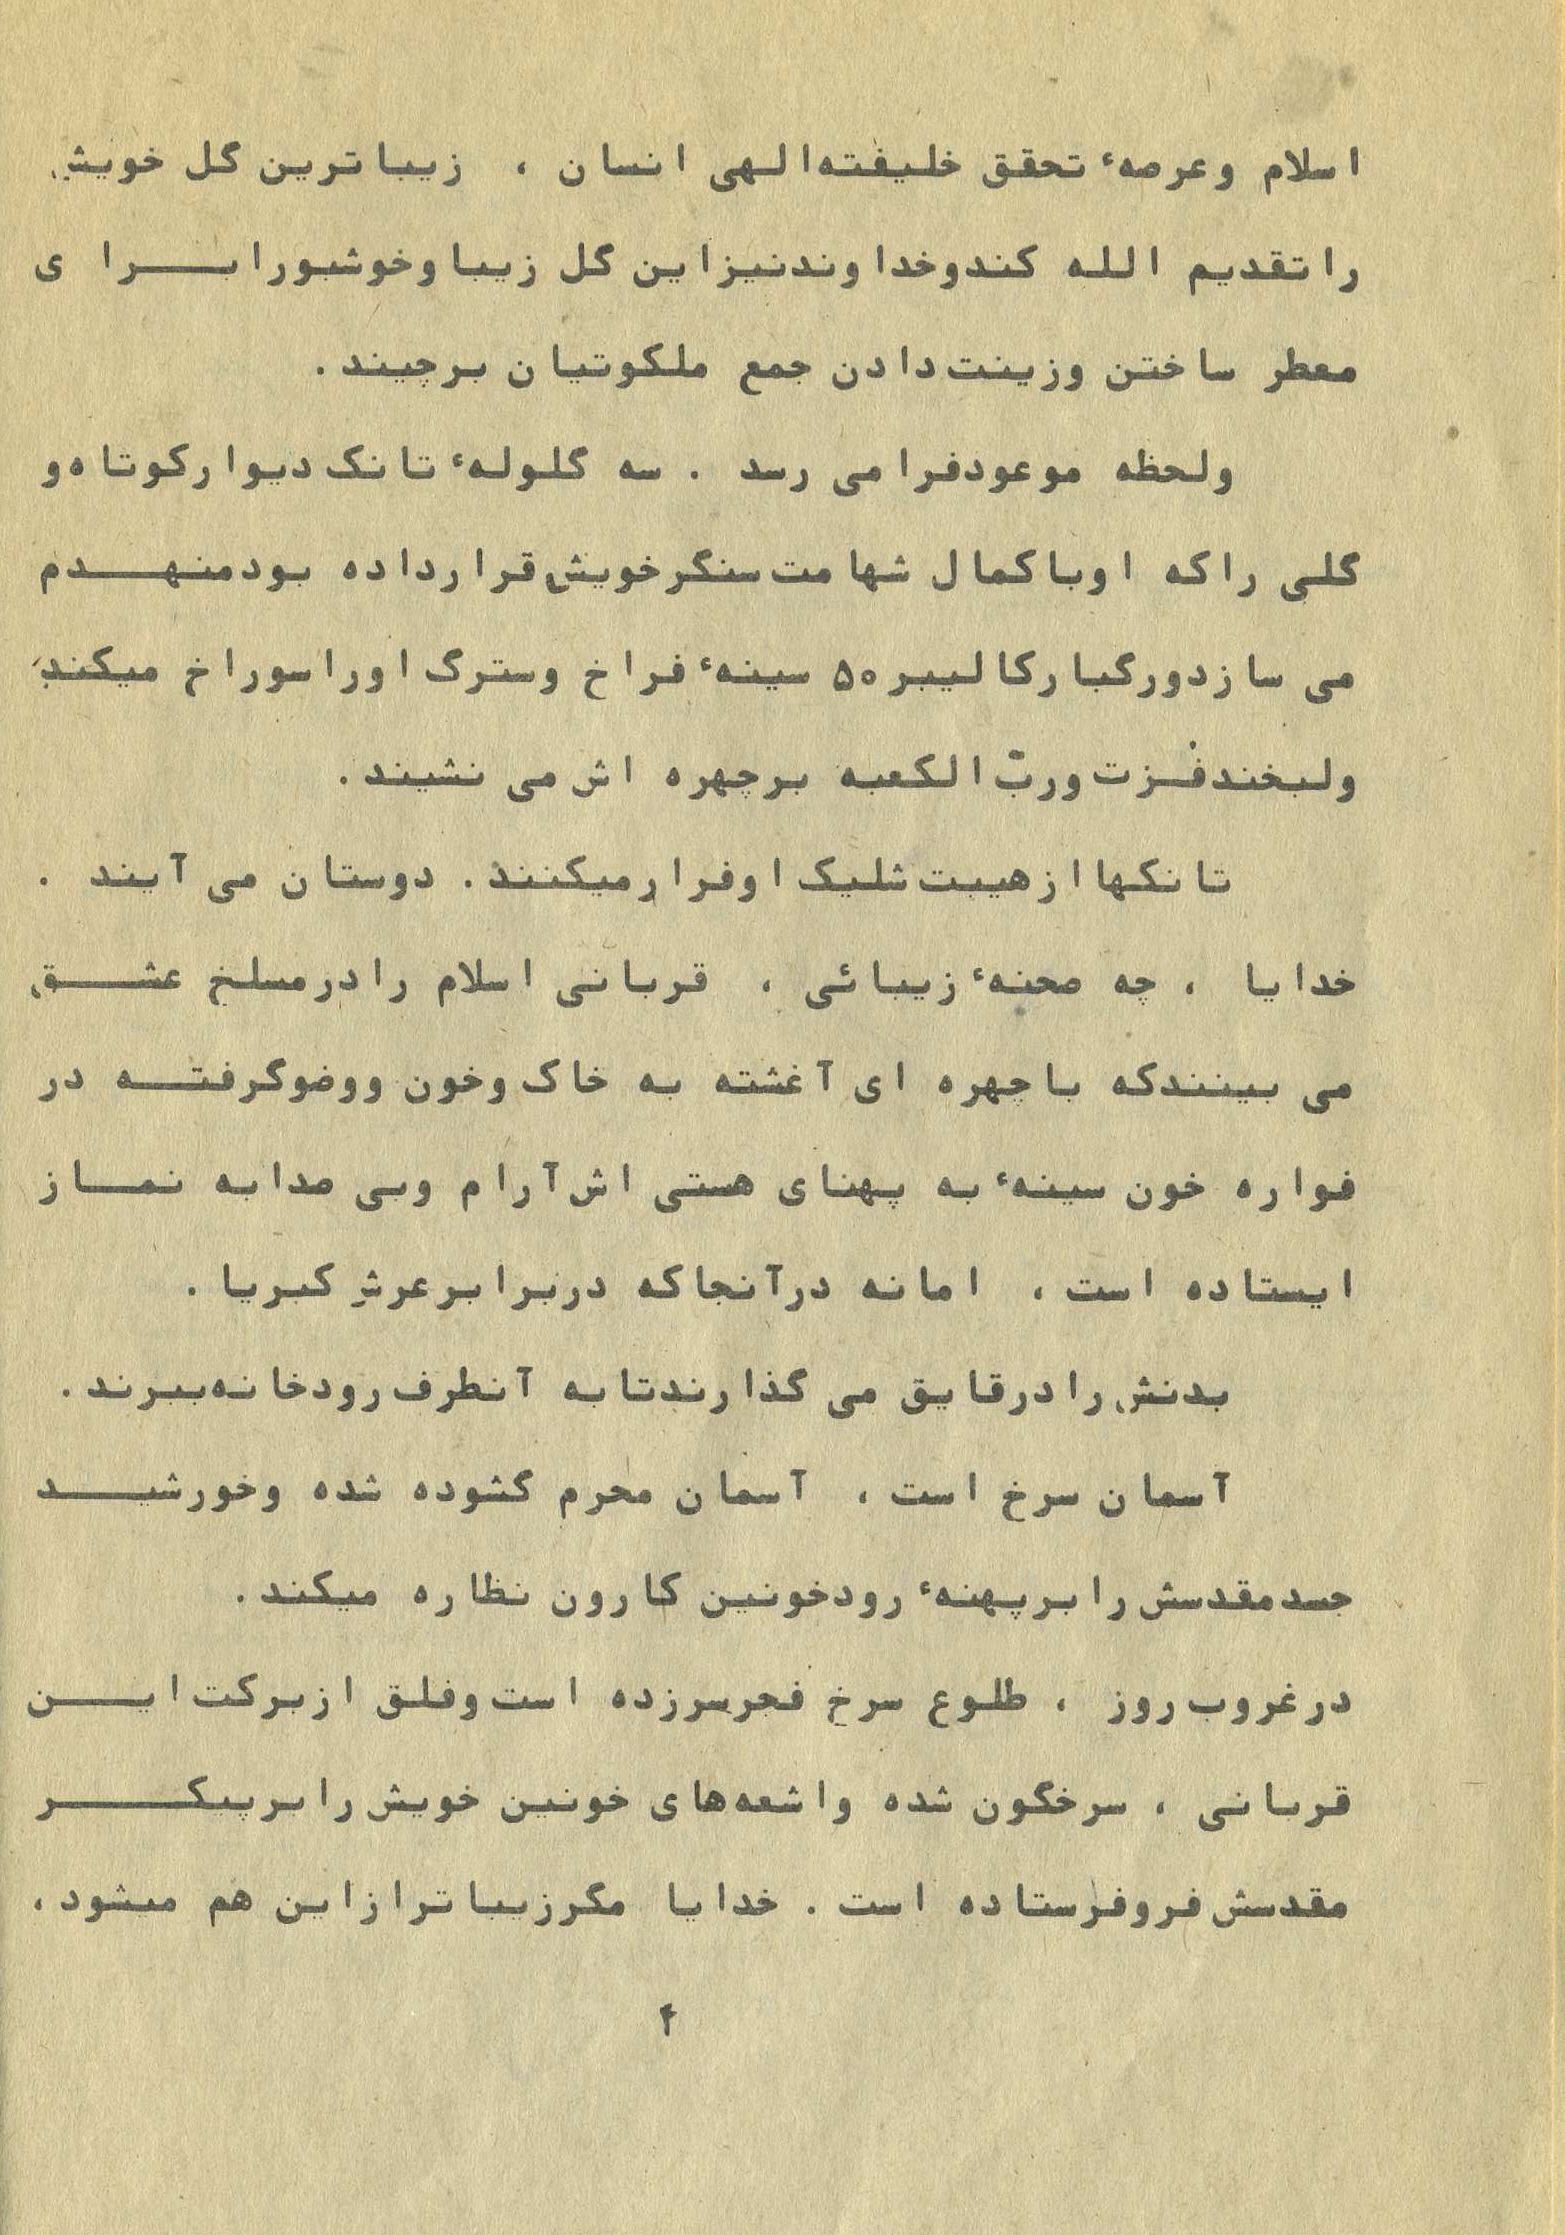 اسلام وعرصهٔ تحقق خلیفته‌الهی انسان ، زیباترین گل خویش
را تقدیم الله کند وخداوند نیز این گل زیبا وخوشبو را برای
معطر ساختن وزینت دادن جمع ملکوتیان برچیند .
ولحظه موعود فرا می رسد . سه گلولهٔ تانک دیوار کوتاه و
گلی را که او با کمال شهامت سنگر خویش قرار داده بود منهدم
می سازد ورگبار کالیبر ۵۰ سینهٔ فراخ وسترگ او را سوراخ میکند
ولبخند فزت وربّ الکعبه بر چهره اش می نشیند .
تانکها از هیبت شلیک او فرار میکنند . دوستان می آیند .
خدایا ، چه صحنهٔ زیبائی ، قربانی اسلام را در مسلخ عشق
می بینند که با چهره ای آغشته به خاک وخون ووضو گرفته در
فواره خون سینهٔ به پهنای هستی اش آرام وبی صدا به نماز
ایستاده است ، اما نه در آنجا که در برابر عرش کبریا .
بدنش را در قایق می گذارند تا به آنطرف رودخانه ببرند .
آسمان سرخ است ، آسمان محرم گشوده شده وخورشید
جسد مقدسش را بر پهنهٔ رود خونین کارون نظاره میکند .
در غروب روز ، طلوع سرخ فجر سرزده است وفلق از برکت این
قربانی ، سرخگون شده واشعه‌های خونین خویش را بر پیکر
مقدسش فرو فرستاده است . خدایا مگر زیباتر از این هم میشود ،
۴